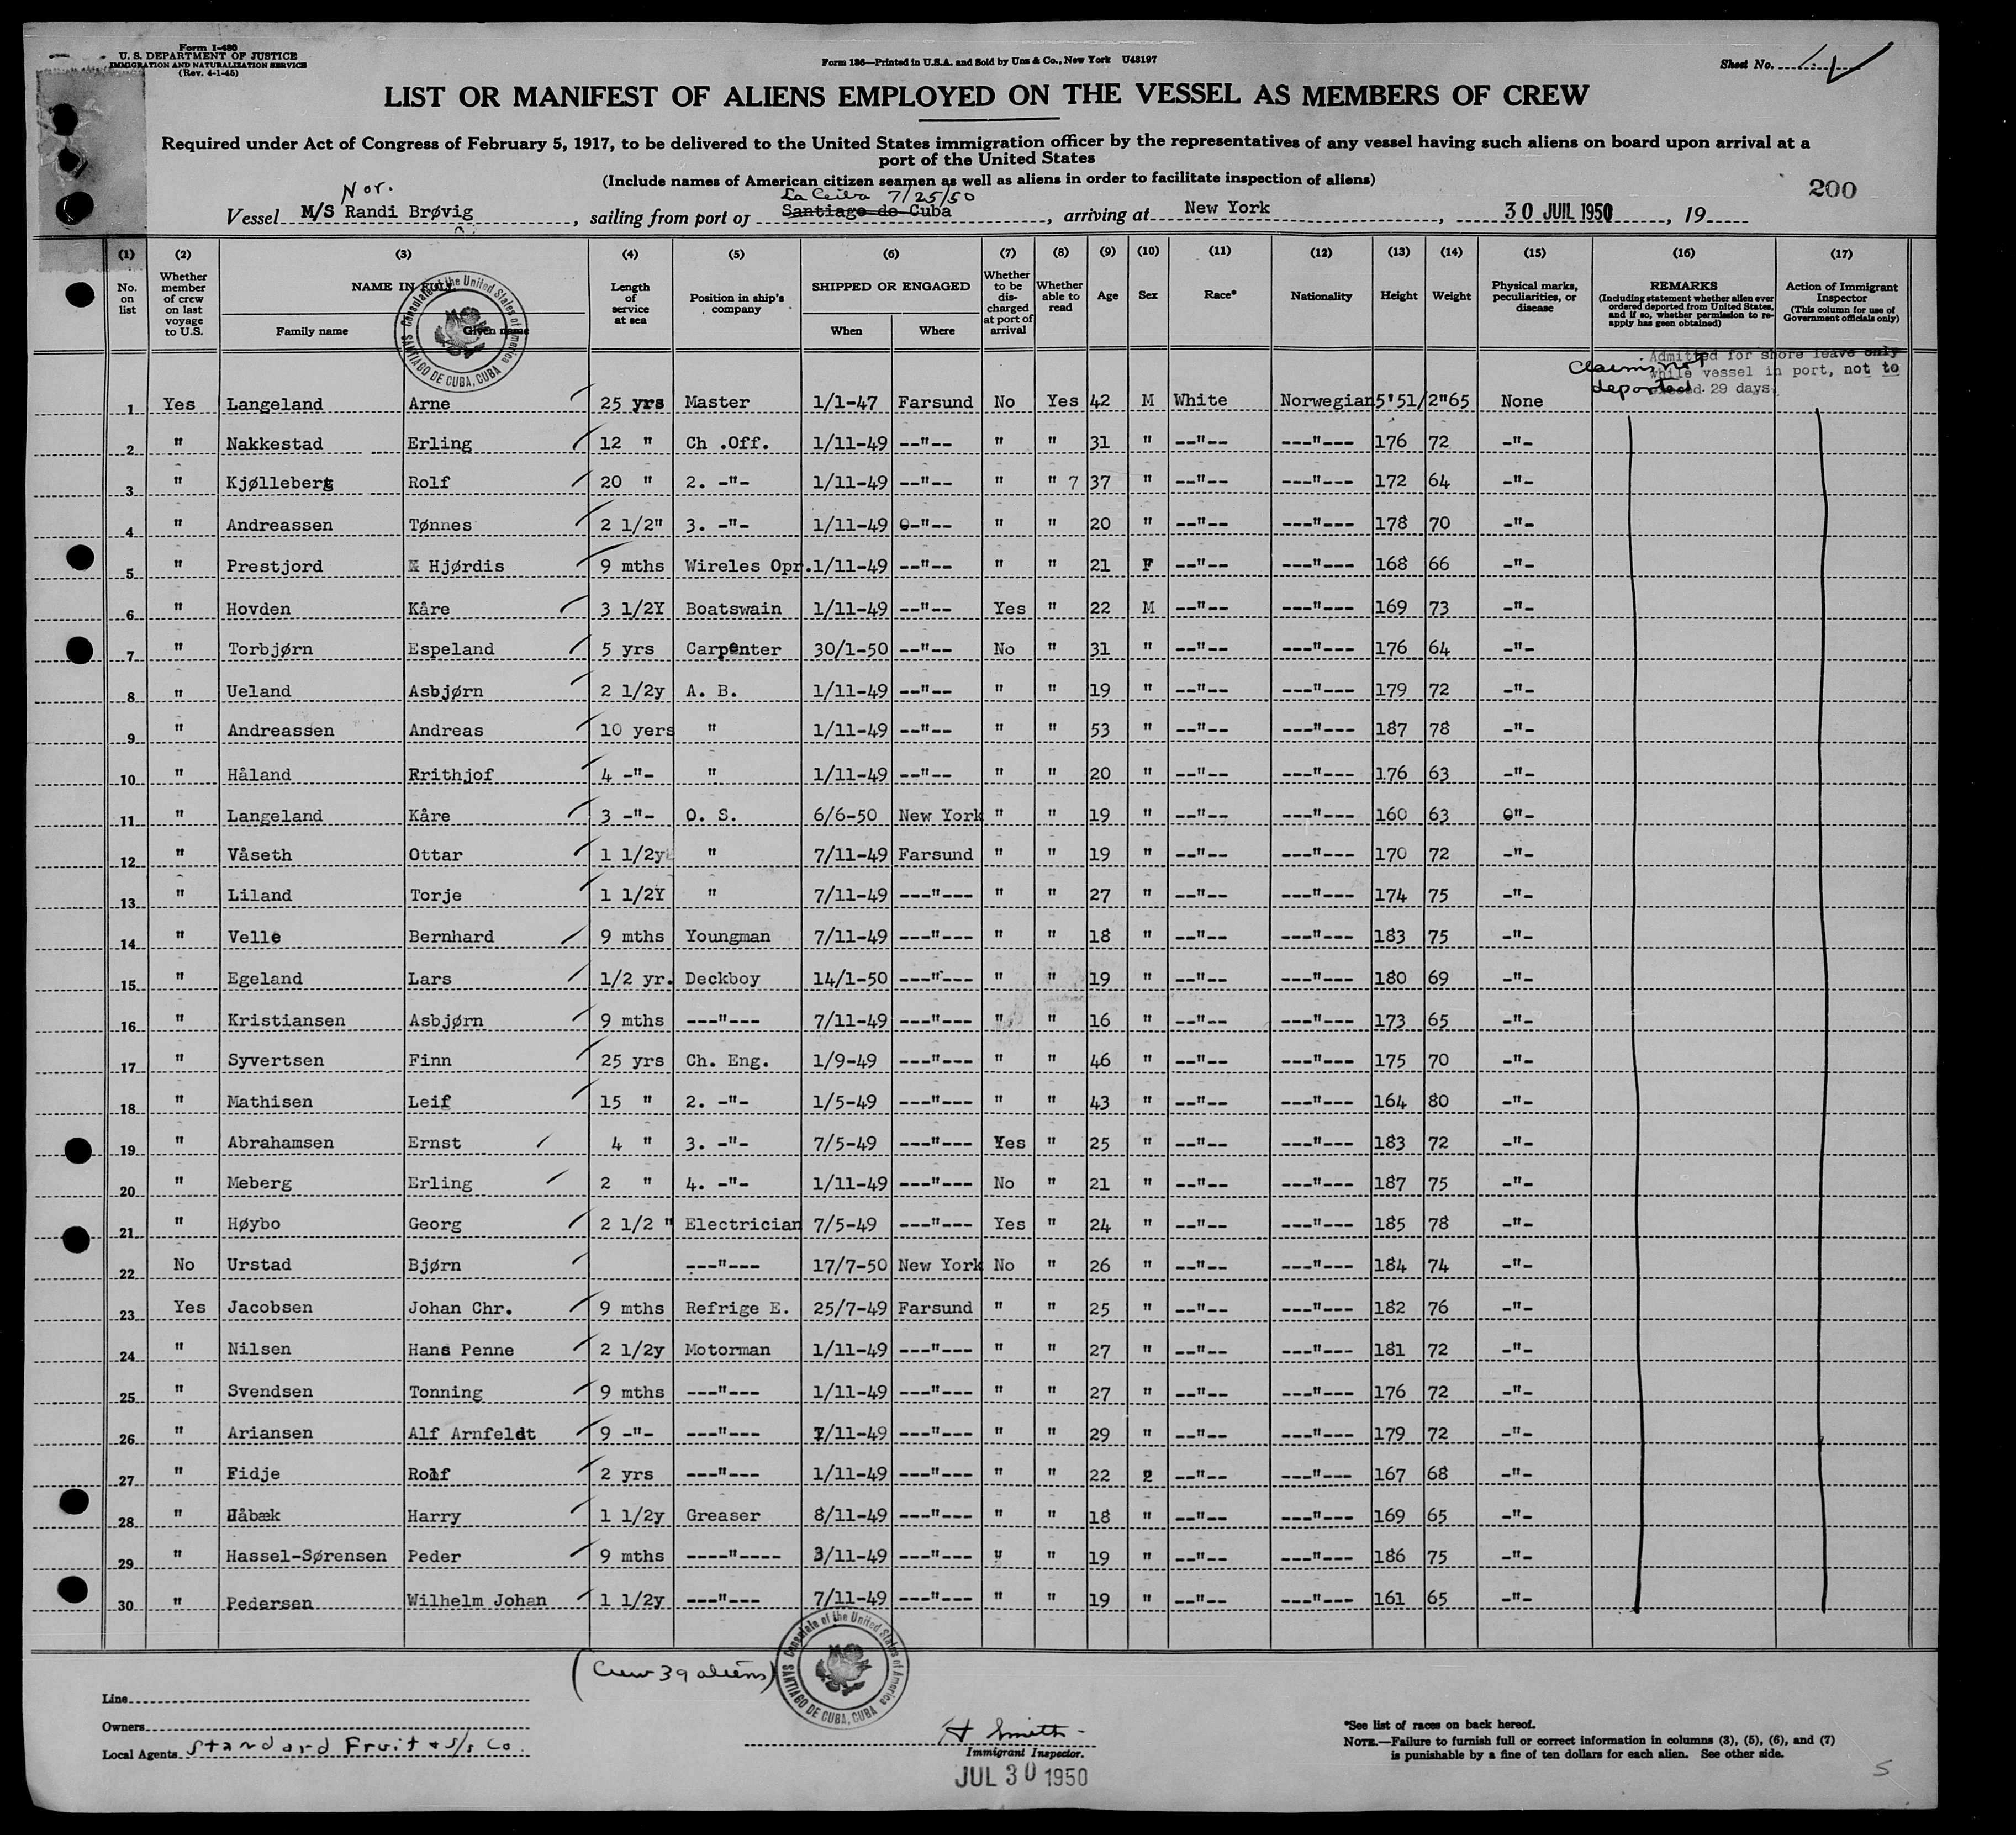 Form I-480
U. S. DEPARTMENT OF JUSTICE
IMMIGRATION AND NATURALIZATION SERVICE
(Rev. 4-1-45)
Form 186—Printed in U.S.A. and Sold by Unz & Co., New York U48197
Sheet No. 1.
LIST OR MANIFEST OF ALIENS EMPLOYED ON THE VESSEL AS MEMBERS OF CREW
Required under Act of Congress of February 5, 1917, to be delivered to the United States immigration officer by the representatives of any vessel having such aliens on board upon arrival at a
port of the United States
(Include names of American citizen seamen as well as aliens in order to facilitate inspection of aliens)
200
Nor. La Ceiba 7/25/50
Vessel M/S Randi Brøvig, sailing from port of Santiago de Cuba, arriving at New York, 30 JUIL 1950, 19
(1) (2) (3) (4) (5) (6) (7) (8) (9) (10) (11) (12) (13) (14) (15) (16) (17)
No. on list
Whether member of crew on last voyage to U.S.
NAME IN FULL
Family name
Given name
Length of service at sea
Position in ship's company
SHIPPED OR ENGAGED
When
Where
Whether to be discharged at port of arrival
Whether able to read
Age
Sex
Race*
Nationality
Height
Weight
Physical marks, peculiarities, or disease
REMARKS
(Including statement whether alien ever ordered deported from United States, and if so, whether permission to re-apply has been obtained)
Action of Immigrant Inspector
(This column for use of Government officials only)
Consulate of the United States of America SANTIAGO DE CUBA, CUBA
Admitted for shore leave only
while vessel in port, not to
exceed 29 days.
Claims not
deported
1 Yes Langeland Arne 25 yrs Master 1/1-47 Farsund No Yes 42 M White Norwegian 5'51/2" 65 None
2 " Nakkestad Erling 12 " Ch .Off. 1/11-49 --"-- " " 31 " --"-- ---"--- 176 72 -"-
3 " Kjølleberg Rolf 20 " 2. -"- 1/11-49 --"-- " " 7 37 " --"-- ---"--- 172 64 -"-
4 " Andreassen Tønnes 2 1/2" 3. -"- 1/11-49 --"-- " " 20 " --"-- ---"--- 178 70 -"-
5 " Prestjord Hjørdis 9 mths Wireles Opr. 1/11-49 --"-- " " 21 F --"-- ---"--- 168 66 -"-
6 " Hovden Kåre 3 1/2Y Boatswain 1/11-49 --"-- Yes " 22 M --"-- ---"--- 169 73 -"-
7 " Torbjørn Espeland 5 yrs Carpenter 30/1-50 --"-- No " 31 " --"-- ---"--- 176 64 -"-
8 " Ueland Asbjørn 2 1/2y A. B. 1/11-49 --"-- " " 19 " --"-- ---"--- 179 72 -"-
9 " Andreassen Andreas 10 yers " 1/11-49 --"-- " " 53 " --"-- ---"--- 187 78 -"-
10 " Håland Rrithjof 4 -"- " 1/11-49 --"-- " " 20 " --"-- ---"--- 176 63 -"-
11 " Langeland Kåre 3 -"- O. S. 6/6-50 New York " " 19 " --"-- ---"--- 160 63 -"-
12 " Våseth Ottar 1 1/2y " 7/11-49 Farsund " " 19 " --"-- ---"--- 170 72 -"-
13 " Liland Torje 1 1/2Y " 7/11-49 ---"--- " " 27 " --"-- ---"--- 174 75 -"-
14 " Velle Bernhard 9 mths Youngman 7/11-49 ---"--- " " 18 " --"-- ---"--- 183 75 -"-
15 " Egeland Lars 1/2 yr. Deckboy 14/1-50 ---"--- " " 19 " --"-- ---"--- 180 69 -"-
16 " Kristiansen Asbjørn 9 mths ---"--- 7/11-49 ---"--- " " 16 " --"-- ---"--- 173 65 -"-
17 " Syvertsen Finn 25 yrs Ch. Eng. 1/9-49 ---"--- " " 46 " --"-- ---"--- 175 70 -"-
18 " Mathisen Leif 15 " 2. -"- 1/5-49 ---"--- " " 43 " --"-- ---"--- 164 80 -"-
19 " Abrahamsen Ernst 4 " 3. -"- 7/5-49 ---"--- Yes " 25 " --"-- ---"--- 183 72 -"-
20 " Meberg Erling 2 " 4. -"- 1/11-49 ---"--- No " 21 " --"-- ---"--- 187 75 -"-
21 " Høybo Georg 2 1/2 " Electrician 7/5-49 ---"--- Yes " 24 " --"-- ---"--- 185 78 -"-
22 No Urstad Bjørn ---"--- 17/7-50 New York No " 26 " --"-- ---"--- 184 74 -"-
23 Yes Jacobsen Johan Chr. 9 mths Refrige E. 25/7-49 Farsund " " 25 " --"-- ---"--- 182 76 -"-
24 " Nilsen Hans Penne 2 1/2y Motorman 1/11-49 ---"--- " " 27 " --"-- ---"--- 181 72 -"-
25 " Svendsen Tonning 9 mths ---"--- 1/11-49 ---"--- " " 27 " --"-- ---"--- 176 72 -"-
26 " Ariansen Alf Arnfeldt 9 -"- ---"--- 7/11-49 ---"--- " " 29 " --"-- ---"--- 179 72 -"-
27 " Fidje Rolf 2 yrs ---"--- 1/11-49 ---"--- " " 22 2 --"-- ---"--- 167 68 -"-
28 " Håbæk Harry 1 1/2y Greaser 8/11-49 ---"--- " " 18 " --"-- ---"--- 169 65 -"-
29 " Hassel-Sørensen Peder 9 mths ----"---- 3/11-49 ---"--- " " 19 " --"-- ---"--- 186 75 -"-
30 " Pedersen Wilhelm Johan 1 1/2y ---"--- 7/11-49 ---"--- " " 19 " --"-- ---"--- 161 65 -"-
(Crew 39 aliens)
Consulate of the United States of America SANTIAGO DE CUBA, CUBA
Line
Owners
Local Agents Standard Fruit & S/S Co.
H Smith
Immigrant Inspector.
JUL 30 1950
*See list of races on back hereof.
NOTE.—Failure to furnish full or correct information in columns (3), (5), (6), and (7)
is punishable by a fine of ten dollars for each alien. See other side.
S